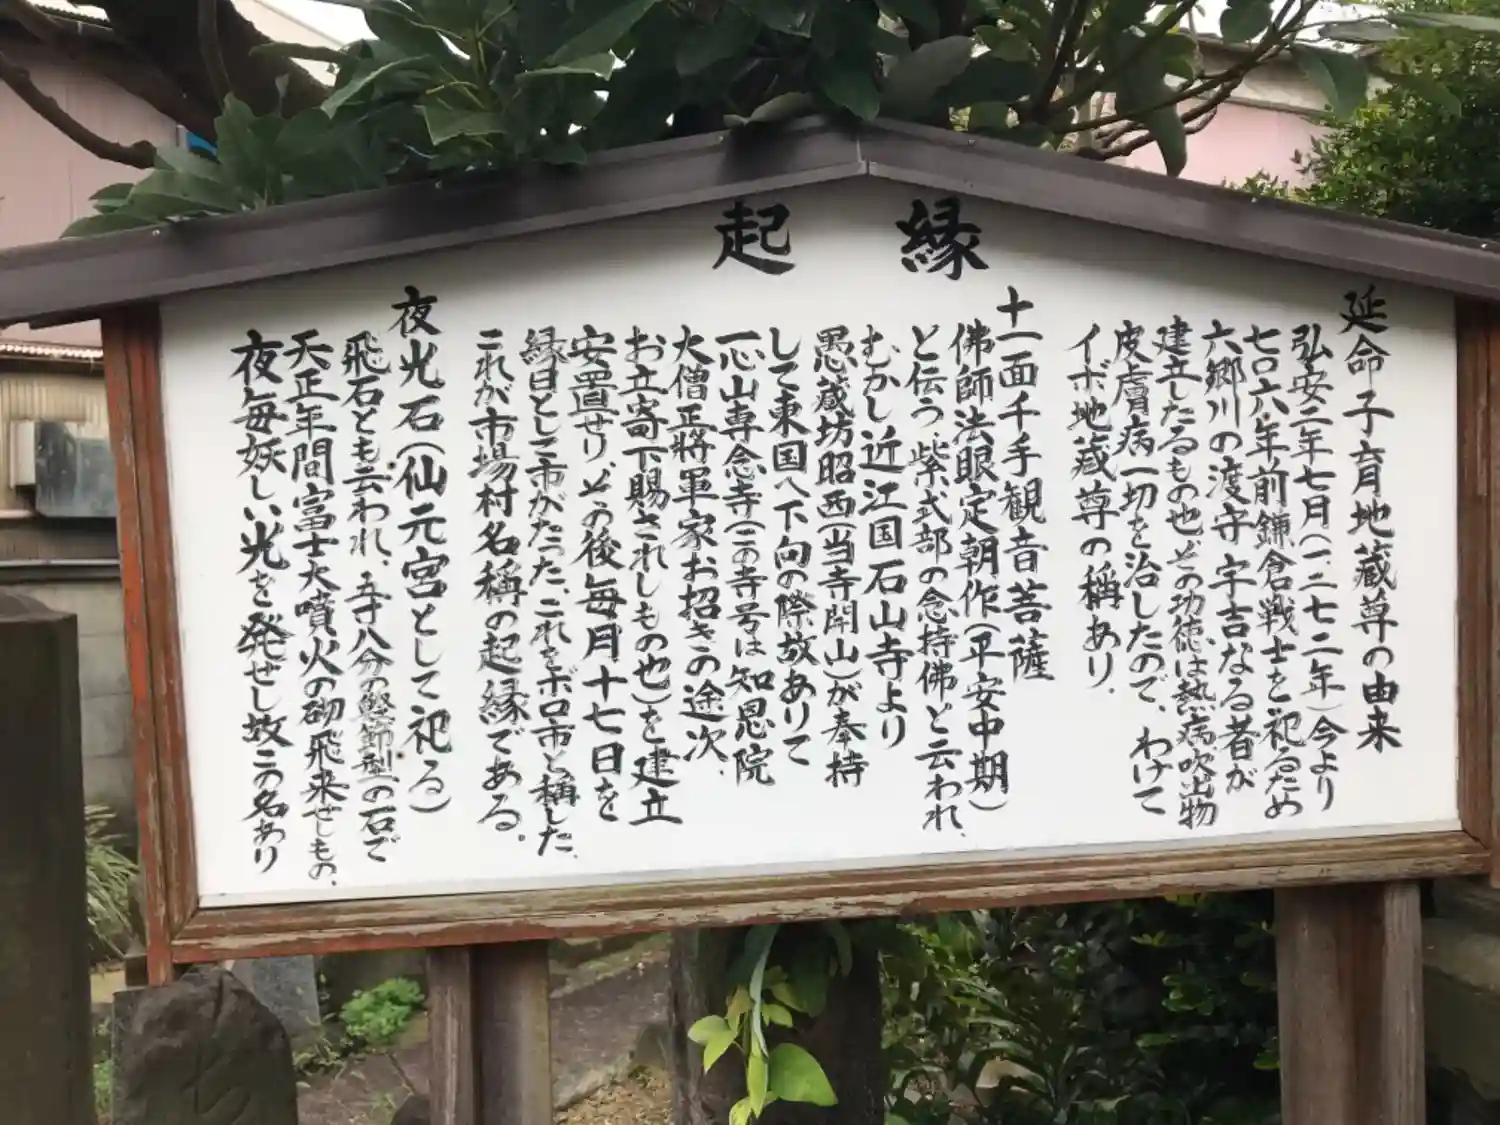 縁起
延命子育地蔵尊の由来
弘安二年七月(一、二七二年)今より
七〇六年前鎌倉戦士を祀るため
六郷川の渡守宇吉なる者が
建立したるもの也どの功徳は熱病吹出物
皮膚病一切を治したので、わけて
イボ地蔵尊の稱あり.
十一面千手観音菩薩
佛師法眼定朝作(平安中期)
と伝う.紫式部の念持佛と云われ、
むかし近江国石山寺より
愚蔵坊昭西(当寺開山)が奉持
して東国へ下向の際故ありて
一心山専念寺(この寺号は知恩院
大僧正将軍家お招きの途次、
お立寄下賜されしもの也)を建立
安置せりどの後毎月十七日を
縁日とし市がたった、これをボロ市と稱した.
これが市場村名稱の起縁である。
夜光石(仙元宮として祀る)
飛石とも云われ、五寸八分の鰹節型の石で
天正年間富士大噴火の砌飛来せしもの、
夜毎妖しい光を発せし故この名あり